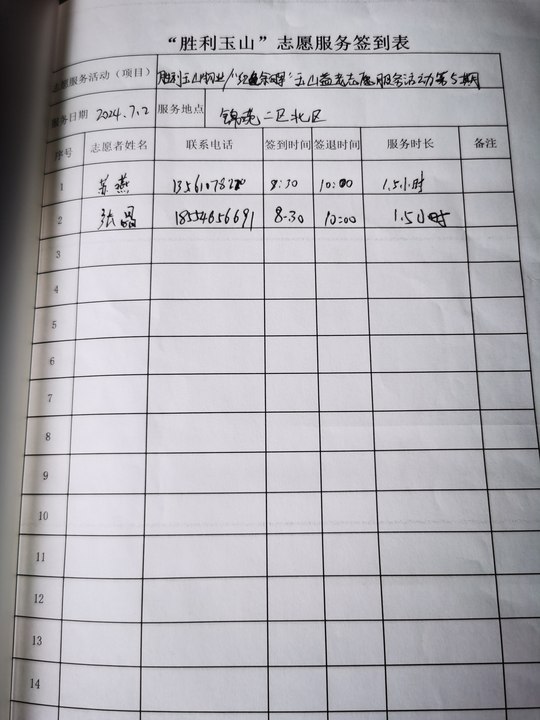 “胜利玉山”志愿服务签到表
志愿服务活动（项目） 胜利玉山物业/“红色余晖”玉山益老志愿服务活动第5期
服务日期 2024.7.2 服务地点 锦苑二区北区
序号 志愿者姓名 联系电话 签到时间 签退时间 服务时长 备注
1 苏燕 8:30 10:00 1.5小时
2 张晶 18554656691 8:30 10:00 1.5小时
3
4
5
6
7
8
9
10
11
12
13
14